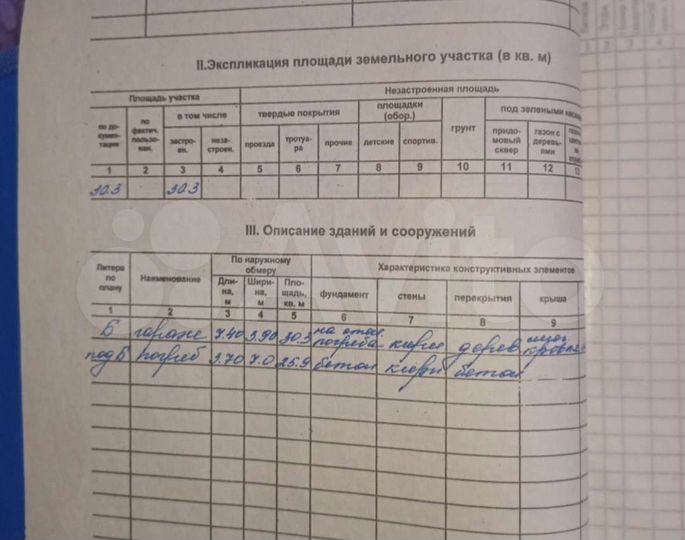 II.Экспликация площади земельного участка (в кв. м)
Площадь участка
Незастроенная площадь
по документации
по фактич. пользован.
в том числе
твердые покрытия
площадки (обор.)
грунт
под зелеными насаж
застроен.
незастроен.
проезда
тротуара
прочие
детские
спортив.
придомовый сквер
газон с деревьями
1 2 3 4 5 6 7 8 9 10 11 12 13
30.3 30.3
III. Описание зданий и сооружений
Литера по плану
Наименование
По наружному обмеру
Характеристика конструктивных элементов
Длина, м
Ширина, м
Площадь, кв. м
фундамент
стены
перекрытия
крыша
1 2 3 4 5 6 7 8 9
Б гараж 7.40 3.90 30.3 на стен. погреба кирп дерев кровля
под Б погреб 3.70 7.0 25.9 бетон кирп бетон
Avito